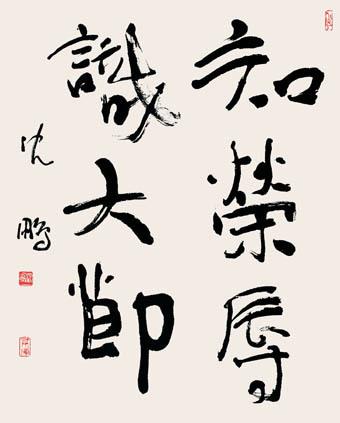 知榮辱
識大節
沈鵬